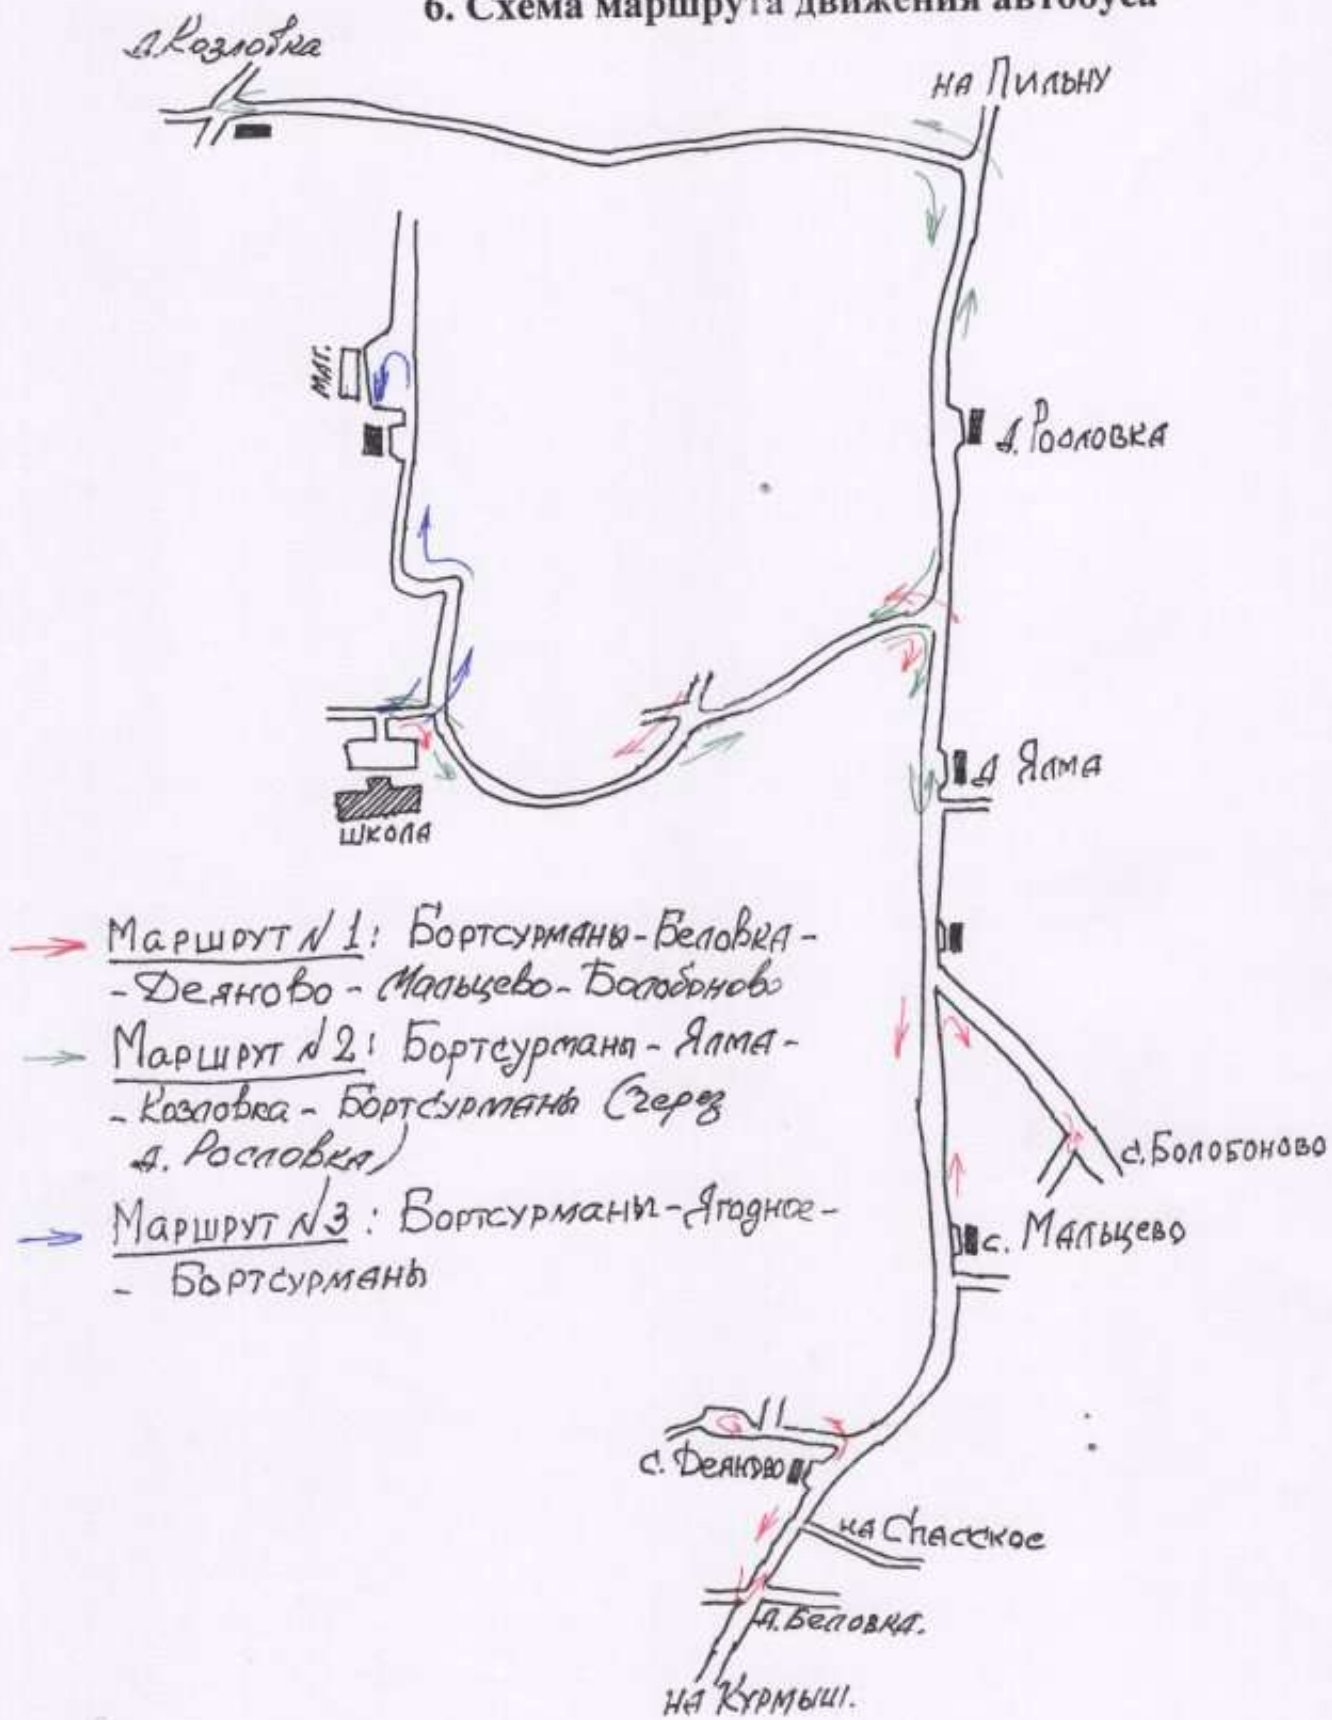 6. Схема маршрута движения автобуса
д. Козловка
на Пильну
маг.
д. Рословка
д Ялма
школа
Маршрут N 1: Бортсурманы-Беловка-
-Деяново-Мальцево-Болобоново
Маршрут N 2: Бортсурманы-Ялма-
-Козловка-Бортсурманы (через
д. Рословка)
с. Болобоново
Маршрут N3: Бортсурманы-Ягодное-
- Бортсурманы
с. Мальцево
с. Деяново
на Спасское
д. Беловка.
на Курмыш.